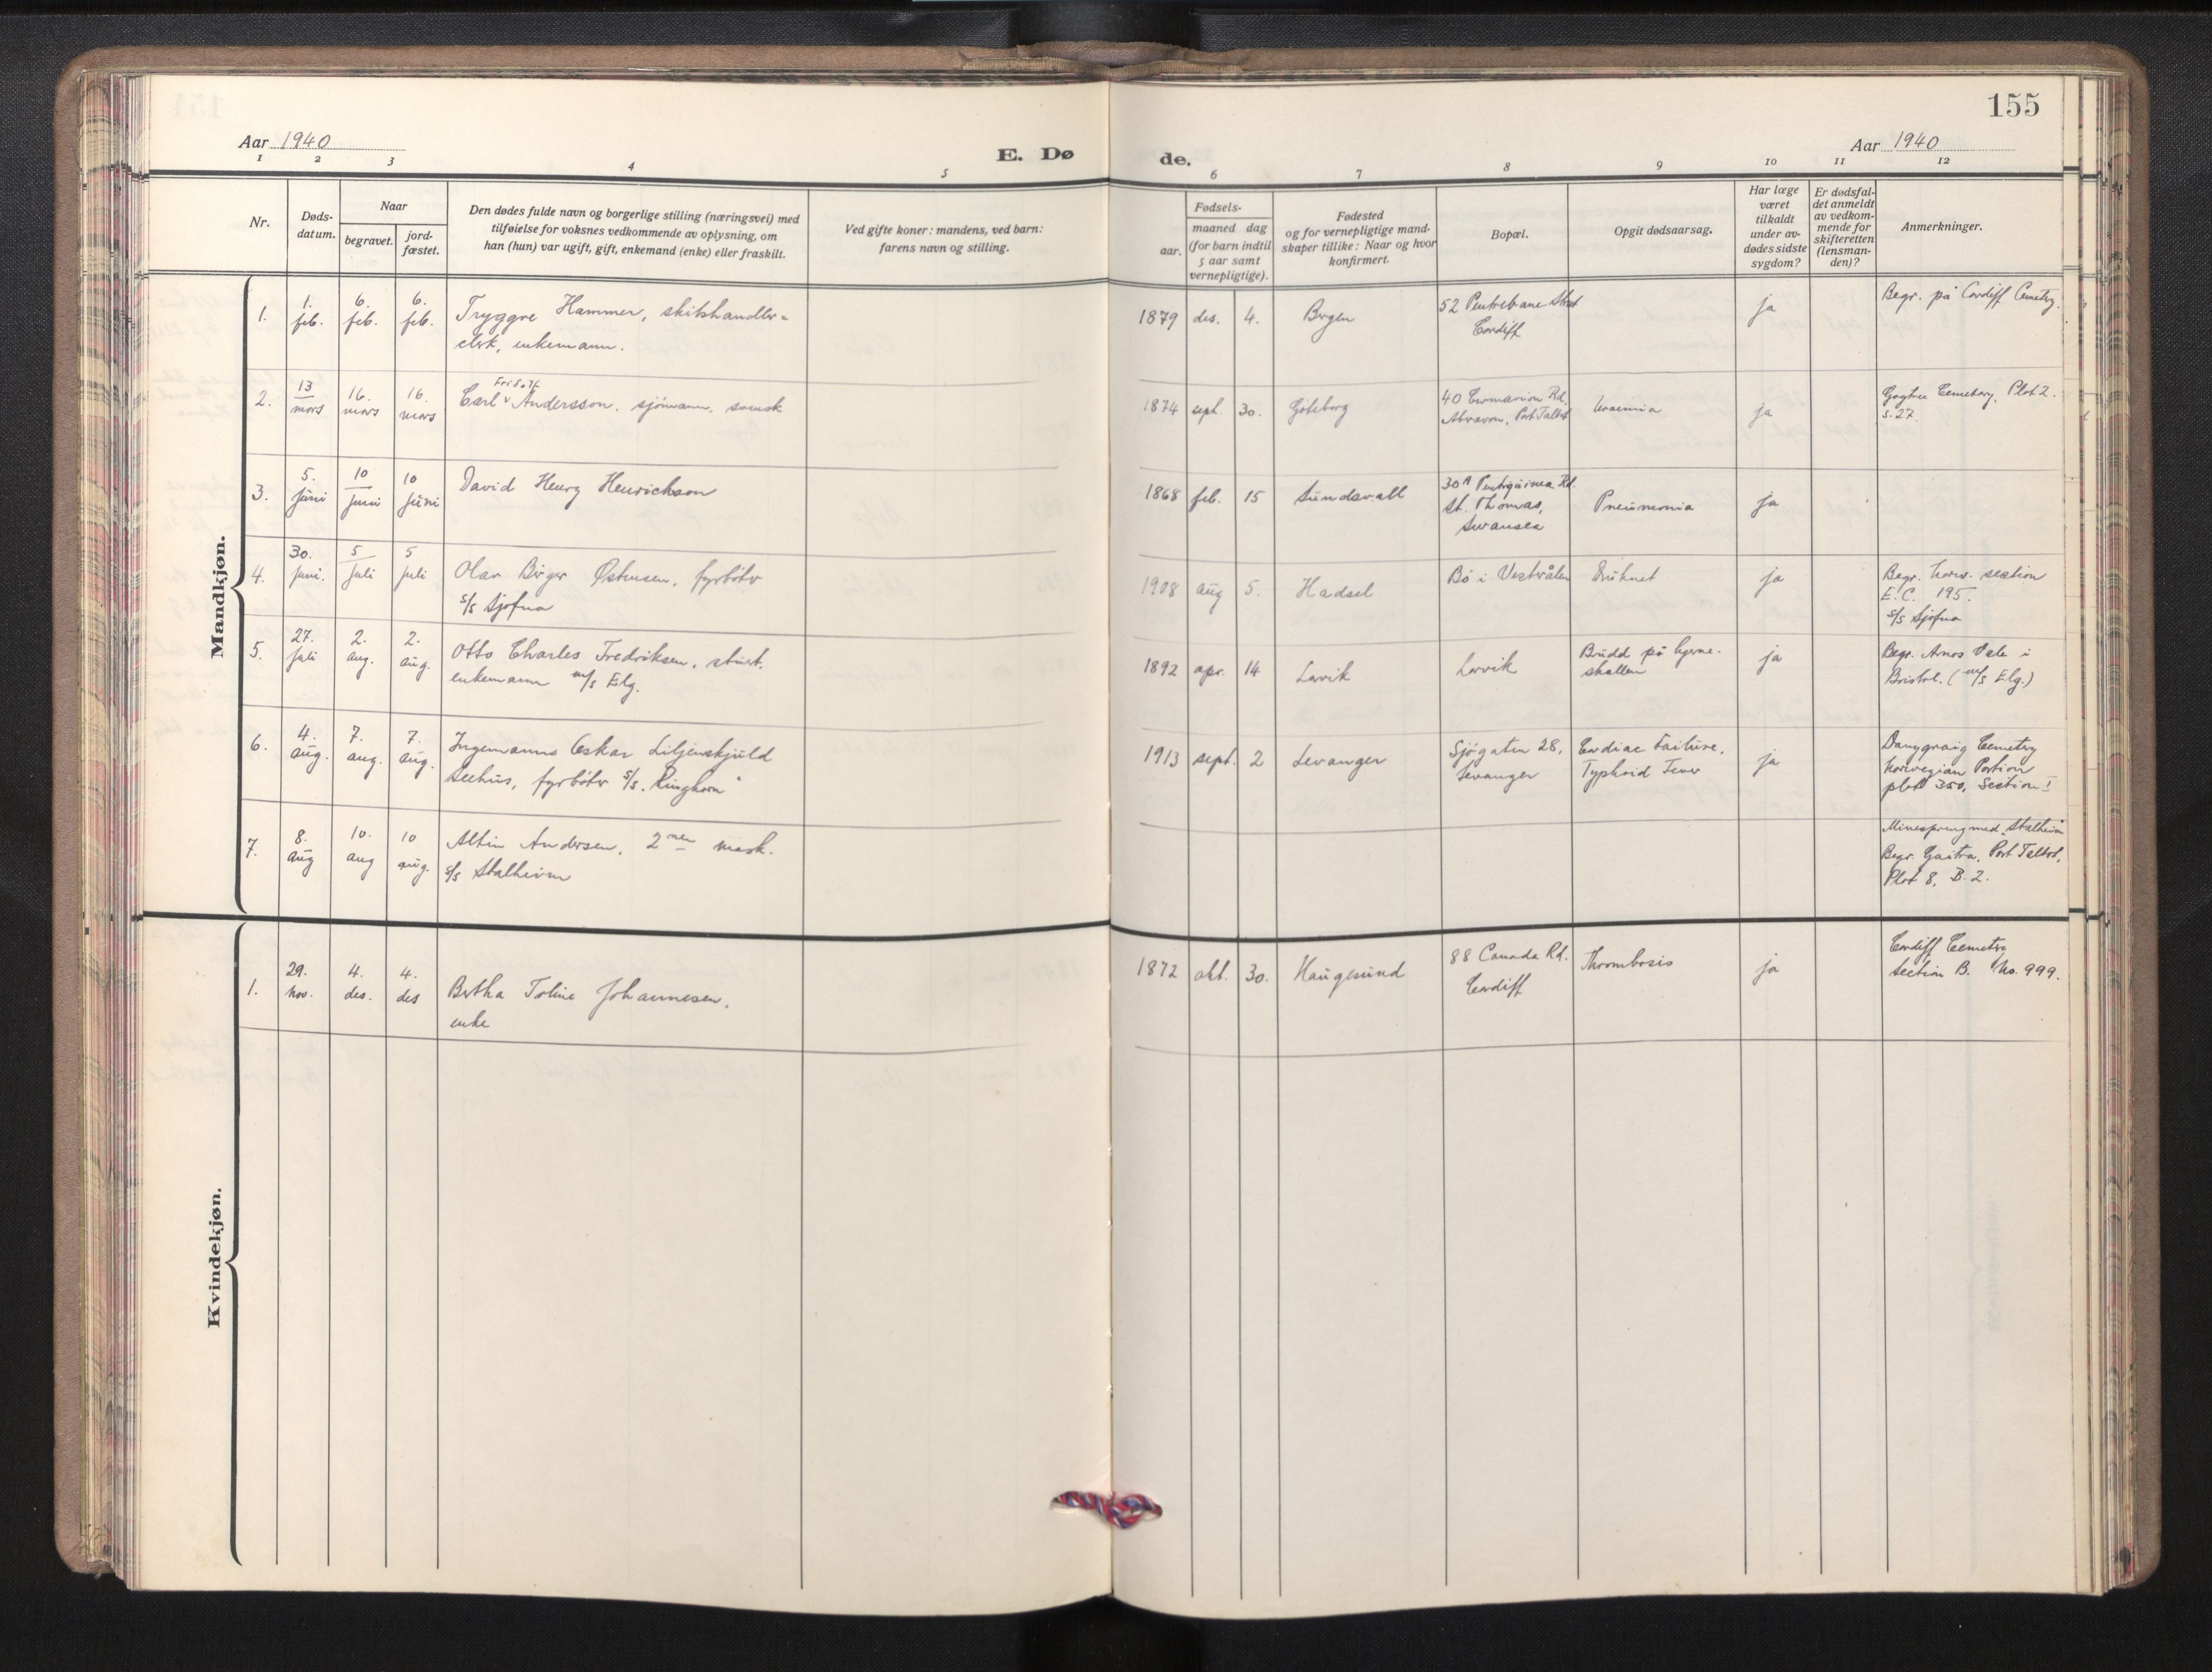 155
Aar 1940
E. Dø
de.
Aar 1940
1 2 3 4 5 6 7 8 9 10 11 12
Nr.
Døds-
datum.
Naar
begravet.
jord-
fæstet.
Den dødes fulde navn og borgerlige stilling (næringsvei) med
tilføielse for voksnes vedkommende av oplysning, om
han (hun) var ugift, gift, enkemand (enke) eller fraskilt.
Ved gifte koner: mandens, ved barn:
farens navn og stilling.
Fødsels-
aar.
maaned dag
(for barn indtil
5 aar samt
vernepligtige).
Fødested
og for vernepligtige mand-
skaper tillike: Naar og hvor
konfirmert.
Bopæl.
Opgit dødsaarsag.
Har læge
været
tilkaldt
under av-
dødes sidste
sygdom?
Er dødsfal-
det anmeldt
av vedkom-
mende for
skifteretten
(lensman-
den)?
Anmerkninger.
Mandkjøn.
1.
1.
feb.
6.
feb.
6.
feb.
Tryggve Hammer, skibshandler=
clerk, enkemann.
1879 des. 4.
Bergen
52 Pentrebane Street
Cardiff
ja
Begr. på Cardiff Cemetry.
2.
13
mars
16.
mars
16.
mars
Fritiof
Carl Andersson. sjömann, svensk
1874 sept. 30.
Göteborg
40 Rd.
Abravon, Port Talbot
Uraemia
ja
Cemetery, Plot 2.
S. 27.
3.
5.
juni
10
juni
10
juni
David Henry Henrichson
1868 feb. 15
Sundsvall
30A Pentreguinea Rd.
St. Thomas,
Swansea
Pneumonia
ja
4.
30.
juni.
5
juli
5
juli
Olav Birger Østensen, fyrböter
s/s Sjofna
1908 aug 5.
Hadsel
Bö i Vesterålen
Druknet
ja
Begr. Norw. section
E.C. 195.
s/s Sjofna
5.
27.
juli
2.
aug.
2.
aug.
Otto Charles Fredriksen, stuert.
enkemann m/s Elg.
1892 apr. 14
Larvik
Larvik
Brudd på hjerne-
skallen
ja
Begr. Arnos Vale i
Bristol. (m/s Elg.)
6.
4.
aug.
7.
aug.
7.
aug.
Ingemanns Oskar Liljenskjuld
Seehus, fyrböter s/s "Ringhorn"
1913 sept. 2
Levanger
Sjögaten 28,
Levanger
Cardiac Failure,
Typhoid Fever
ja
Danygraig Cemetry
Norwegian Portion
plot 350, Section I
7.
8.
aug
10.
aug
10
aug.
Altin Andersen, 2nen mask.
s/s Stalheim
Minesprengt med "Stalheim
Begr. Goitra, Port Talbot,
Plot 8, B. 2.
Kvindekjøn.
1.
29.
nov.
4.
des.
4.
des
Bertha Toline Johannesen,
enke
1872 okt. 30.
Haugesund
88 Canada Rd.
Cardiff
Thrombosis
ja
Cardiff Cemetry
Section B. No. 999.